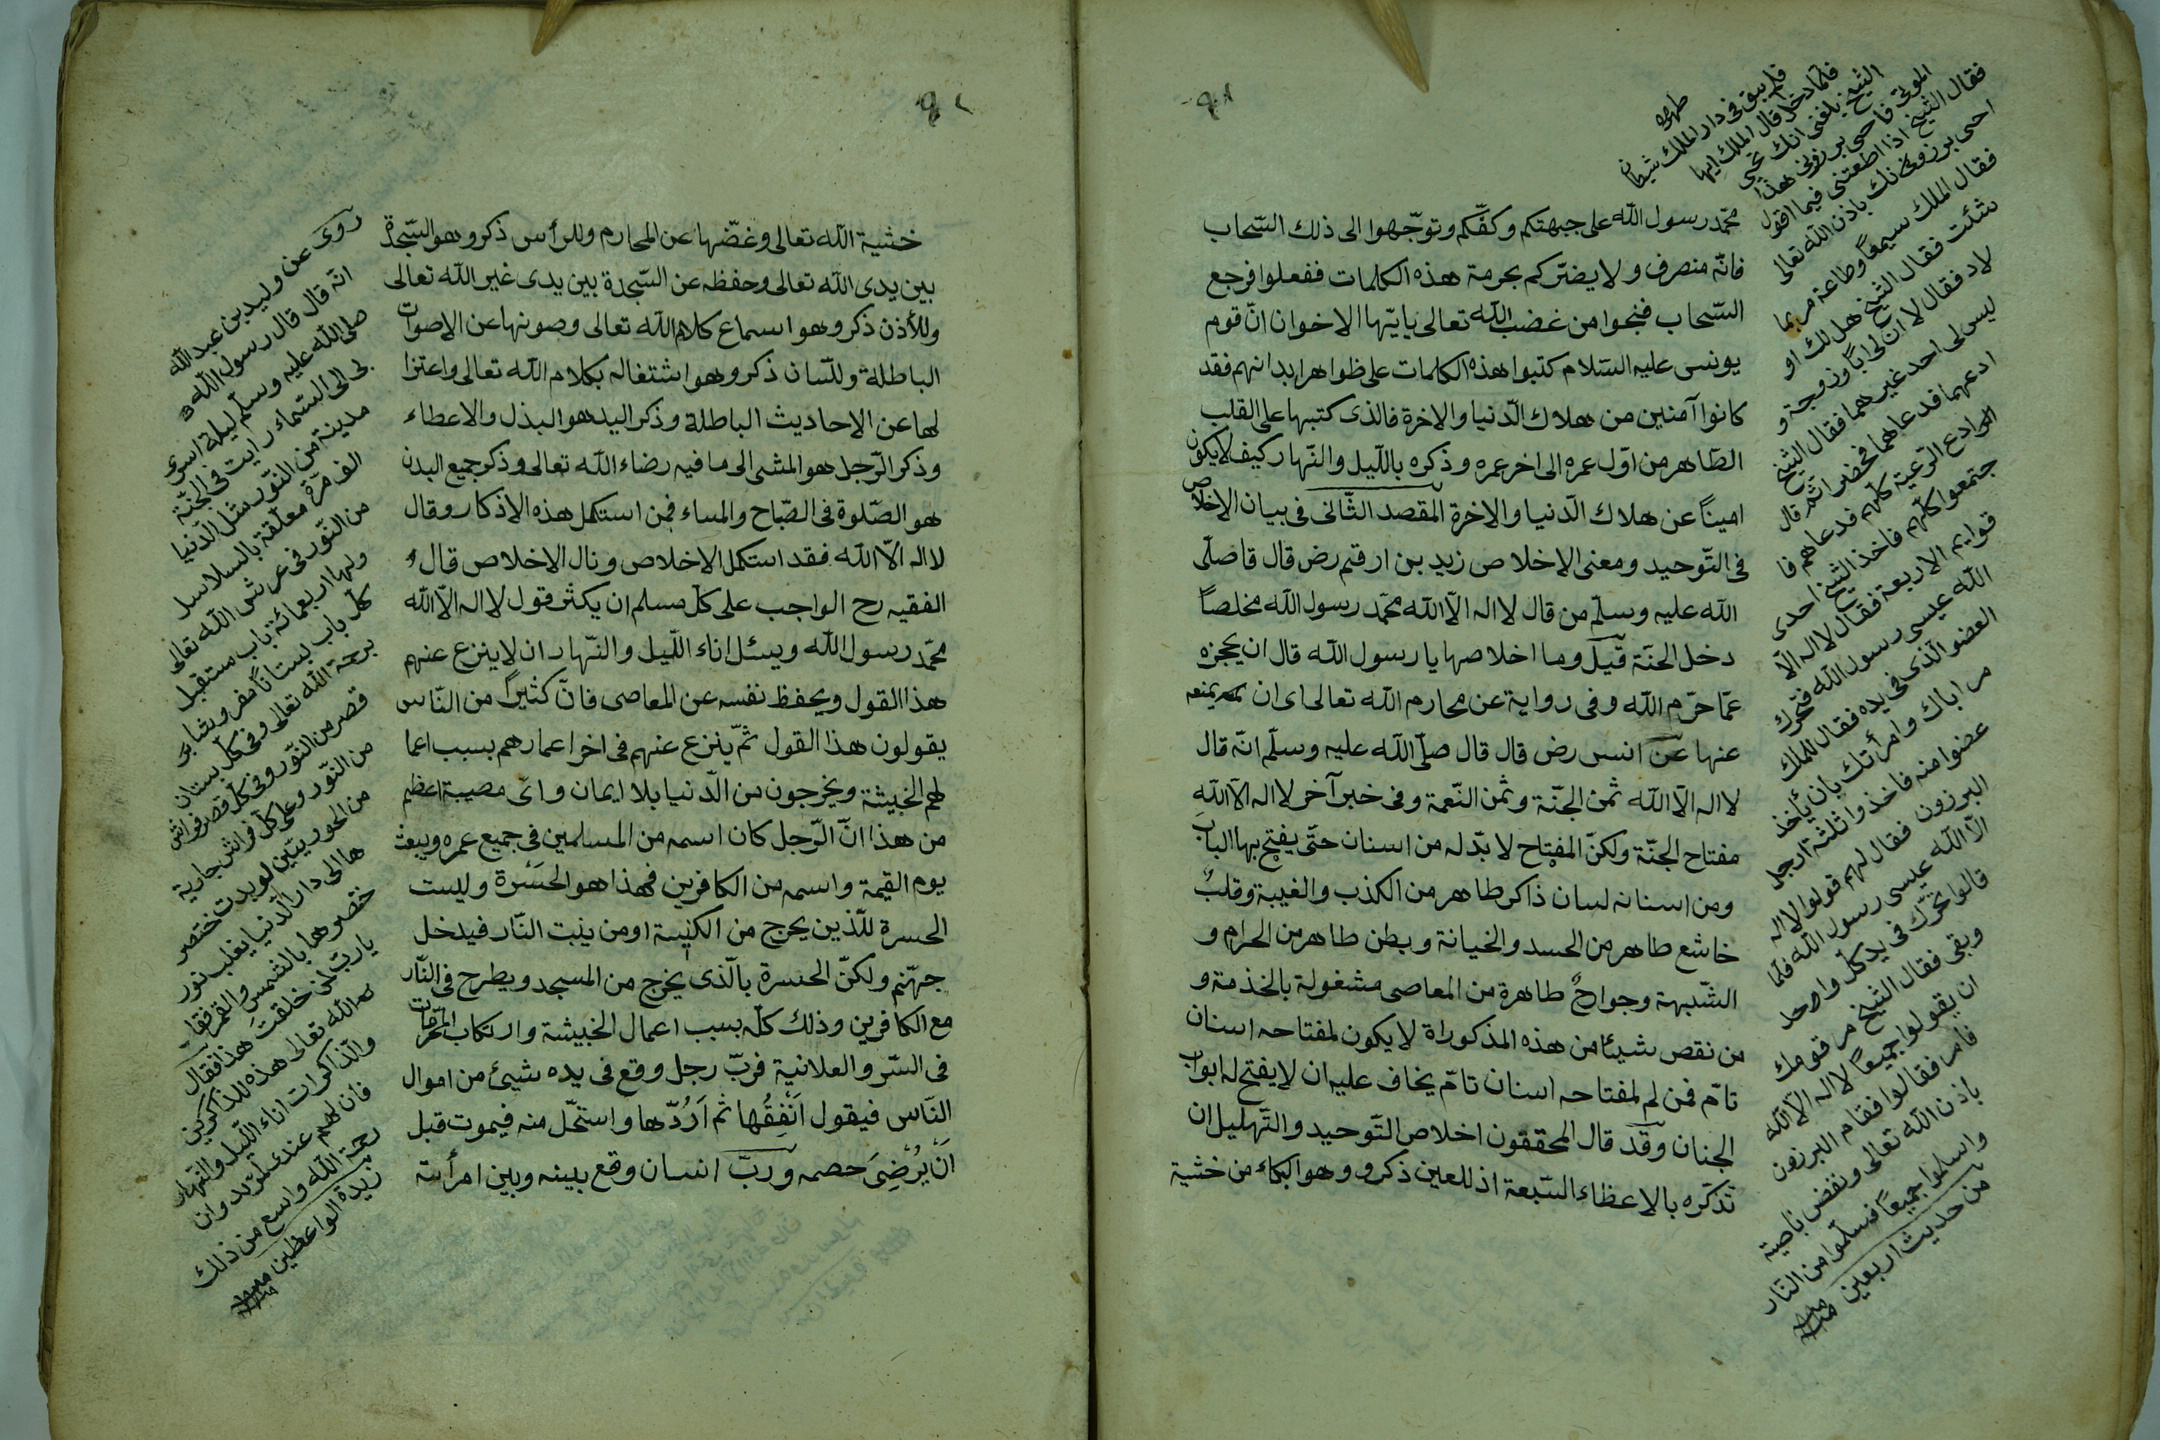 محمّد رسول الله على جبهتكم وكفّكم وتوجّهوا الى ذلك السّحاب
فانّه منصرف ولا يضرّكم بحرمة هذه الكلمات ففعلوا فرجع
السّحاب فنجوا من غضب الله تعالى يا ايّها الاخوان انّ قوم
يونس عليه السّلام كتبوا هذه الكلمات على ظواهر ابدانهم فقد
كانوا آمنين من هلاك الدّنيا والاخرة فالذى كتبها على القلب
الطّاهر من اوّل عمره الى اخر عمره وذكره باللّيل والنّهار كيف لا يكون
امينًا عن هلاك الدّنيا والاخرة المقصد الثّانى فى بيان الاخلاص
فى التّوحيد ومعنى الاخلاص زيد بن ارقم رض قال قا صلّى
الله عليه وسلّم من قال لا اله الّا الله محمّد رسول الله مخلصًا
دخل الجنّة قيل وما اخلاصها يا رسول الله قال ان يحجزه
عمّا حرّم الله وفى رواية عن محارم الله تعالى اى ان يمنعه
عنها عن انس رض قال قال صلّى الله عليه وسلّم انّه قال
لا اله الّا الله ثمن الجنّة وثمن النّعمة وفى خبر آخر لا اله الّا الله
مفتاح الجنّة ولكنّ المفتاح لا بدّ له من اسنان حتّى يفتح بها الباب
ومن اسنانه لسان ذاكر طاهر من الكذب والغيبة وقلبٌ
خاشع طاهر من الحسد والخيانة وبطن طاهر من الحرام و
الشّبهة وجوارحٌ طاهرة من المعاصى مشغولة بالخذمة و
من نقص شيئا من هذه المذكوراة لا يكون لمفتاحه اسنان
تامّ فمن لم لمفتاحه اسنان تامّ يخاف عليه ان لا يفتح له ابواب
الجنان وقد قال المحققون اخلاص التّوحيد والتّهليل ان
تذكره بالاعظاء السّبعة اذ للعين ذكر وهو البكاء من خشية
فلم يبق فى دار الملك شيئان
فلمّا دخل قال الملك ايها
الشيخ بلغنى انك تحيى
الموتى فاحى برزونى هذا
فقال الشيخ اذا اطعتنى فيما اقول
احى برزونك باذن الله تعالى
فقال الملك سيمعًا وطاعة مر بما
شئت فقال الشيخ هل لك او
لاد فقال لا ان لى ابًا وزوجة و
ليس لى احد غيرهما فقال الشيخ
ادعهما فدعاهما فحضرا ثمّ قال
ادع الرّعية كلّهم فدعاهم فا
جتمعوا كلّهم فاخذ الشيخ احدى
قوايم الاربعة فقال لا اله الّا
الله عيسى رسول الله فتحرك
العضو الّذى فى يده فقال للملك
مر اباك وامرأتك بان يأخذ
عضوا منه فاخذوا ثلثة ارجل
البرزون فقال لهم قولوا لا اله
الّا الله عيسى رسول الله فلمّا
قالوا تحرّك فى يد كلّ واحد
وبقى فقال الشيخ مر قومك
ان يقولوا جميعًا لا اله الّا الله
فامر فقالوا فقام البرزون
باذن الله تعالى ونفض ناصية
واسلموا جميعًا فسلّموا من النّار
من حديث اربعين
خشية الله تعالى وغضّها عن المحارم وللرأس ذكر وهو السّجدة
بين يدى الله تعالى وحفظه عن السّجدة بين يدى غير الله تعالى
وللأذن ذكر وهو اسماع كلام الله تعالى وصونها عن الاصوات
الباطلة وللسان ذكر وهو اشتغاله بكلام الله تعالى واعتزا
لها عن الاحاديث الباطلة وذكر اليد هو البذل والاعطاء
وذكر الرّجل هو المشى الى ما فيه رضاء الله تعالى وذكر جميع البدن
هو الصّلوة فى الصّباح والمساء فمن استكمل هذه الاذكار وقال
لا اله الّا الله فقد استكمل الاخلاص ونال الاخلاص قال
الفقيه رح الواجب على كلّ مسلم ان يكثر قول لا اله الّا الله
محمّد رسول الله ويسئل اناء اللّيل والنّهار ان لا ينزع عنهم
هذا القول ويحفظ نفسه عن المعاصى فانّ كثيرًا من النّاس
يقولون هذا القول ثمّ ينزع عنهم فى اخر اعمارهم بسبب اعما
لهم الخبيثة ويخرجون من الدّنيا بلا ايمان واىّ مصيبة اعظم
من هذا انّ الرّجل كان اسمه من المسلمين فى جميع عمره ويبعث
يوم القيمة واسمه من الكافرين فهذا هو الحَسْرة وليست
الحسرة للّذين يخرج من الكنيسة او من بيت النّار فيدخل
جهنّم ولكنّ الحسرة بالّذى يخرج من المسجد ويطرح فى النّار
مع الكافرين وذلك كلّه بسبب اعمال الخبيشة وارتكاب المحرّمات
فى السّر والعلانية فربّ رجل وقع فى يده شيئ من اموال
النّاس فيقول اَنْفِقُها ثم اَرُدّها واستحّل منه فيموت قبل
اَنْ يُرْضِىَ حصمه وربّ انسان وقع بينه وبين امرأته
روى عن وليد بن عبد الله
انّه قال قال رسول الله
صلى الله عليه وسلّم ليلة اسرى
بى الى السّماء رايت فى الجنّة
مدينة من النّور مثل الدّنيا
الف مرّة معلّقة بالسلاسل
من النّور فى عرش الله تعالى
ولها اربعمائة باب مستقبل
كلّ باب بستانًا
برحمة الله تعالى وفى كلّ بستان
قصر من النّور وفى كلّ قصر فراش
من النّور وعلى كلّ فراش جارية
من الحور يتين لو بدت ختصر
ها الى دار الدّنيا يغلب نور
خنصرها بالشمس والقمر فقا
يا ربّ لمن خلقت هذا فقال
الله تعالى هذه للذّاكرين
والذّاكرات اناء اللّيل والنّهار
فان لهم عندى لمزيد وان
رحمة الله واسع من ذلك
زبدة الواعظين